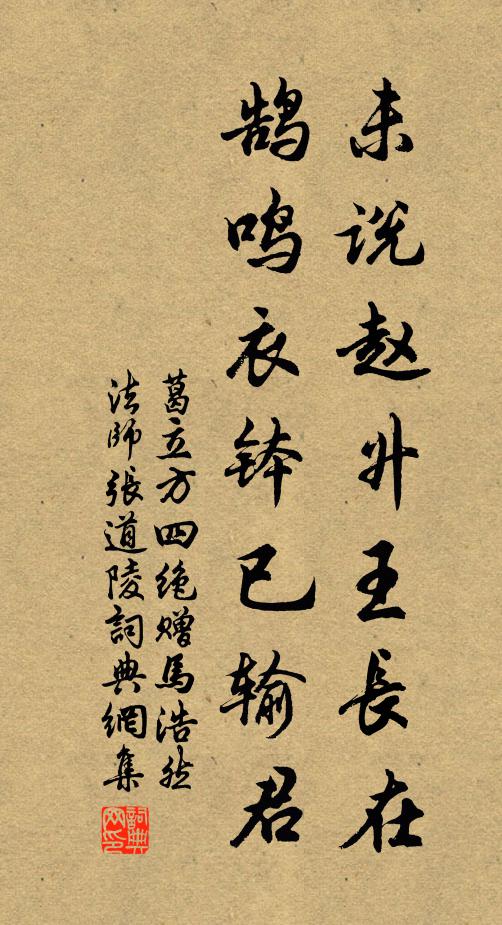 未说赵升王長在
鹄鸣衣钵已输君
葛立方四绝赠馬浩然
法師張道陵詞典網集
詞典
网印